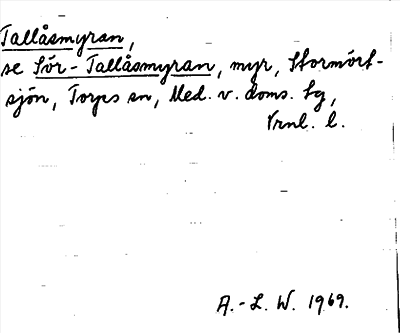 Tallåsmyran,
se Sör-Tallåsmyran, myr, Stormört-
sjön, Torps sn, Med. v. doms. tg,
Vrnl. l.
A.-L. W. 1969.